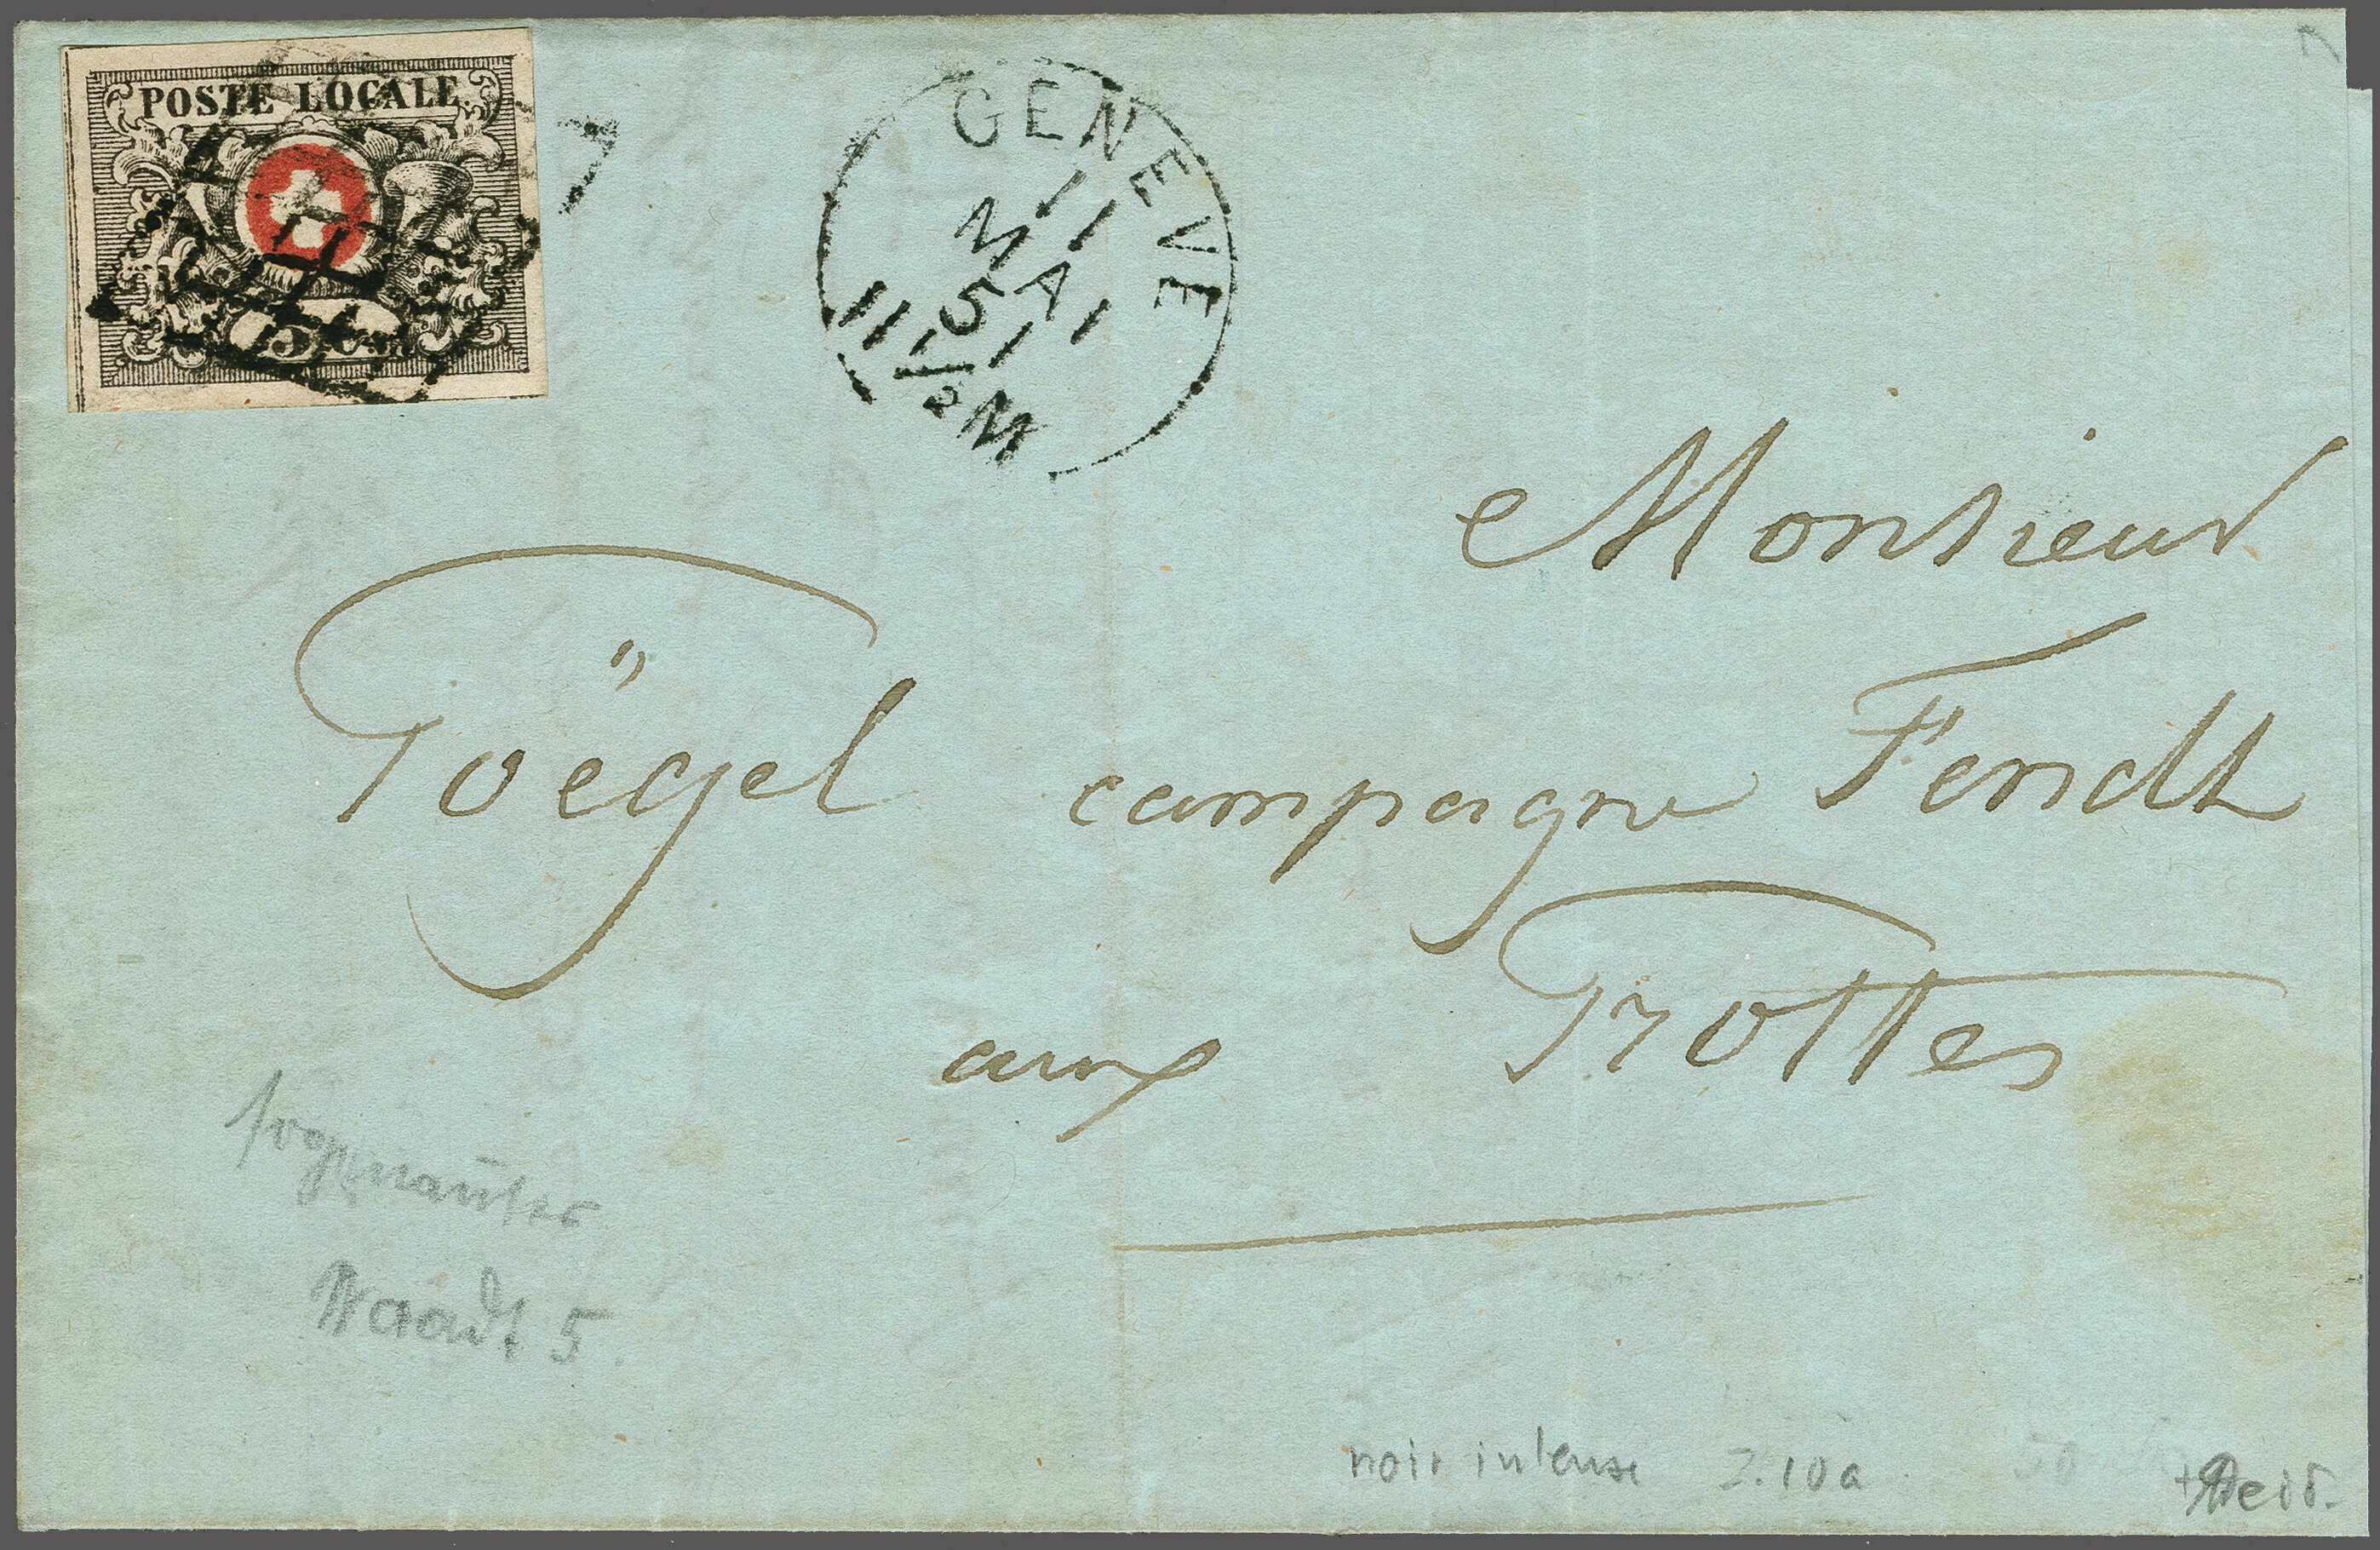 POSTE LOCALE
5 C.
GENEVE
11
MAI
51
11 1/2 M
Monsieur
Töegel campagne Fendt
aux Trottes
Waadt 5.
noir intense Z. 10a